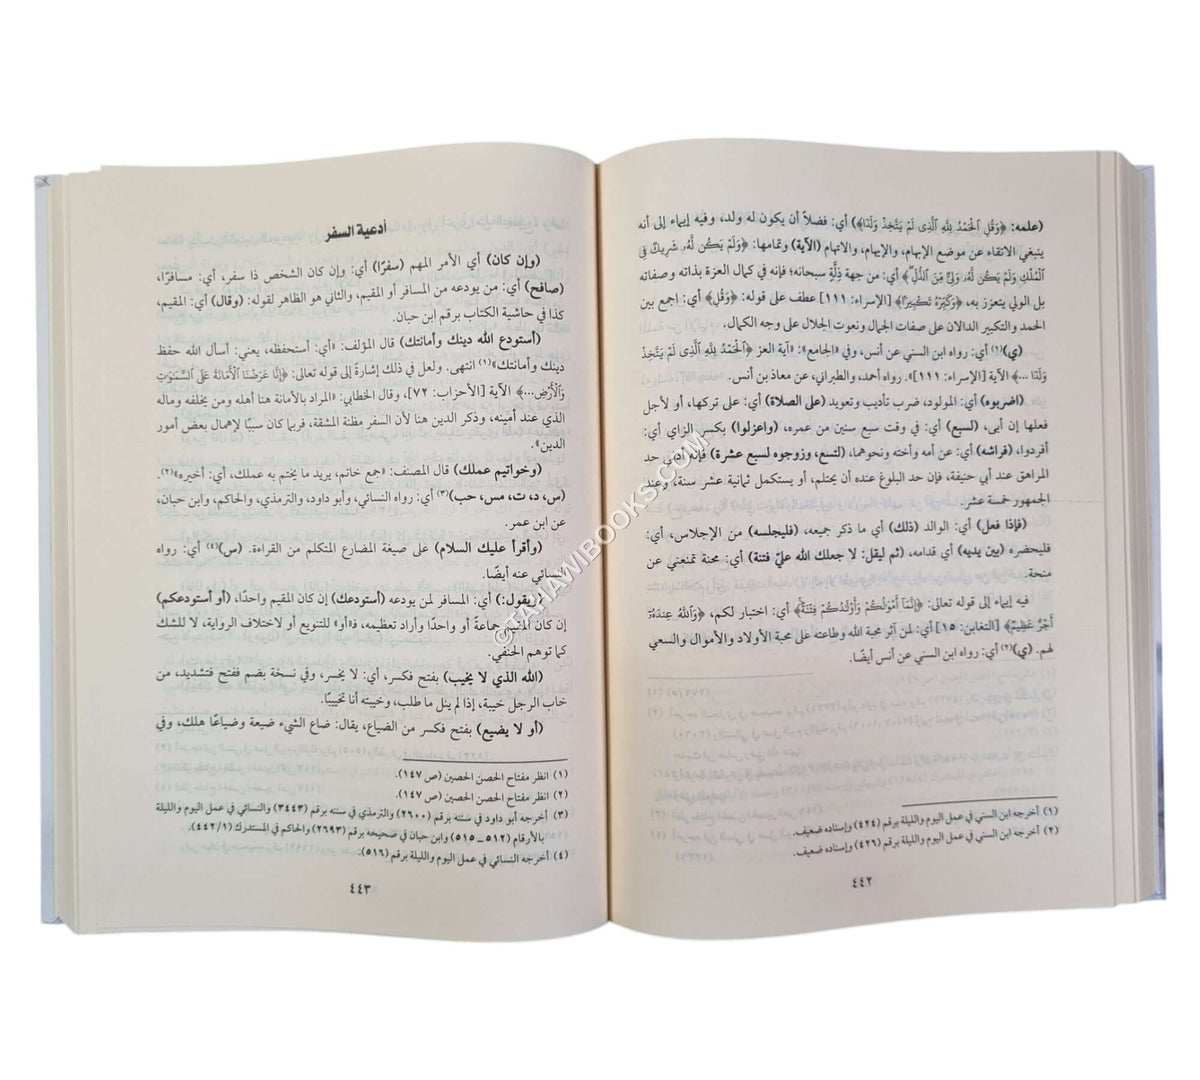 (علمه: ﴿وَقُلِ الْحَمْدُ لِلَّهِ الَّذِي لَمْ يَتَّخِذْ وَلَدًا﴾) أي: فضلاً أن يكون له ولد، وفيه إيماء إلى أنه
ينبغي الاتقاء عن موضع الإبهام، والإيهام، والاتهام (الآية) وتمامها: ﴿وَلَمْ يَكُن لَّهُ شَرِيكٌ فِي
الْمُلْكِ وَلَمْ يَكُن لَّهُ وَلِيٌّ مِّنَ الذُّلِّ﴾ أي: من جهة ذِلَّةٍ سبحانه؛ فإنه في كمال العزة بذاته وصفاته
بل الولي يتعزز به، ﴿وَكَبِّرْهُ تَكْبِيرًا﴾ [الإسراء: ١١١] عطف على قوله: ﴿وَقُلِ﴾ أي: اجمع بين
الحمد والتكبير الدالان على صفات الجمال ونعوت الجلال على وجه الكمال.
(ي)(١) أي: رواه ابن السني عن أنس، وفي «الجامع»: «آية العز ﴿الْحَمْدُ لِلَّهِ الَّذِي لَمْ يَتَّخِذْ
وَلَدًا ...﴾ الآية [الإسراء: ١١١]». رواه أحمد، والطبراني، عن معاذ بن أنس.
(اضربوه) أي: المولود، ضرب تأديب وتعويد (على الصلاة) أي: على تركها، أو لأجل
فعلها إن أبى، (لسبع) أي: في وقت سبع سنين من عمره، (واعزلوا) بكسر الزاي أي:
أفردوا، (فراشه) أي: عن أمه وأخته ونحوهما، (لتسع، وزوجوه لسبع عشرة) فإنه أدنى حد
المراهق عند أبي حنيفة، فإن حد البلوغ عنده أن يحتلم، أو يستكمل ثمانية عشر سنة، وعند
الجمهور خمسة عشر.
(فإذا فعل) أي: الوالد (ذلك) أي ما ذكر جميعه، (فليجلسه) من الإجلاس، أي:
فليحضره (بين يديه) أي قدامه، (ثم ليقل: لا جعلك الله عليّ فتنة) أي: محنة تمنعني عن
منحة.
فيه إيماء إلى قوله تعالى: ﴿إِنَّمَا أَمْوَالُكُمْ وَأَوْلَادُكُمْ فِتْنَةٌ﴾ أي: اختبار لكم، ﴿وَاللَّهُ عِندَهُ
أَجْرٌ عَظِيمٌ﴾ [التغابن: ١٥] أي: لمن آثر محبة الله وطاعته على محبة الأولاد والأموال والسعي
لهم. (ي)(٢) أي: رواه ابن السني عن أنس أيضًا.
(١) أخرجه ابن السني في عمل اليوم والليلة برقم (٤٢٤) وإسناده ضعيف.
(٢) أخرجه ابن السني في عمل اليوم والليلة برقم (٤٢٦) وإسناده ضعيف.
٤٤٢
أدعية السفر
(وإن كان) أي الأمر المهم (سفرًا) أي: وإن كان الشخص ذا سفر، أي: مسافرًا،
(صافح) أي: من يودعه من المسافر أو المقيم، والثاني هو الظاهر لقوله: (وقال) أي: المقيم،
كذا في حاشية الكتاب برقم ابن حبان.
(أستودع الله دينك وأمانتك) قال المؤلف: «أي: أستحفظه، يعني: أسأل الله حفظ
دينك وأمانتك»(١) انتهى. ولعل في ذلك إشارةً إلى قوله تعالى: ﴿إِنَّا عَرَضْنَا الْأَمَانَةَ عَلَى السَّمَاوَاتِ
وَالْأَرْضِ...﴾ الآية [الأحزاب: ٧٢]، وقال الخطابي: «المراد بالأمانة هنا أهله ومن يخلفه وماله
الذي عند أمينه، وذكر الدين هنا لأن السفر مظنة المشقة، فربما كان سببًا لإهمال بعض أمور
الدين».
(وخواتيم عملك) قال المصنف: «جمع خاتم، يريد ما يختم به عملك، أي: أخيره»(٢).
(س، د، ت، مس، حب)(٣) أي: رواه النسائي، وأبو داود، والترمذي، والحاكم، وابن حبان،
عن ابن عمر.
(وأقرأ عليك السلام) على صيغة المضارع المتكلم من القراءة. (س)(٤) أي: رواه
النسائي عنه أيضًا.
(ويقول:) أي: المسافر لمن يودعه (أستودعك) إن كان المقيم واحدًا، (أو أستودعكم)
إن كان المقيم جماعةً أو واحدًا وأراد تعظيمه، فـ«أو» للتنويع أو لاختلاف الرواية، لا للشك
كما توهم الحنفي.
(الله الذي لا يخيب) بفتح فكسر، أي: لا يخسر، وفي نسخة بضم ففتح فتشديد، من
خاب الرجل خيبة، إذا لم ينل ما طلب، وخيبته أنا تخييبًا.
(أو لا يضيع) بفتح فكسر من الضياع، يقال: ضاع الشيء ضيعة وضياعًا هلك، وفي
(١) انظر مفتاح الحصن الحصين (ص ١٤٧).
(٢) انظر مفتاح الحصن الحصين (ص ١٤٧).
(٣) أخرجه أبو داود في سننه برقم (٢٦٠٠) والترمذي في سننه برقم (٣٤٤٣) والنسائي في عمل اليوم والليلة
بالأرقام (٥١٢ـ٥١٥) وابن حبان في صحيحه برقم (٢٦٩٣) والحاكم في المستدرك (١/ ٤٤٢).
(٤) أخرجه النسائي في عمل اليوم والليلة برقم (٥١٦).
٤٤٣
©TAHAWIBOOKS.COM